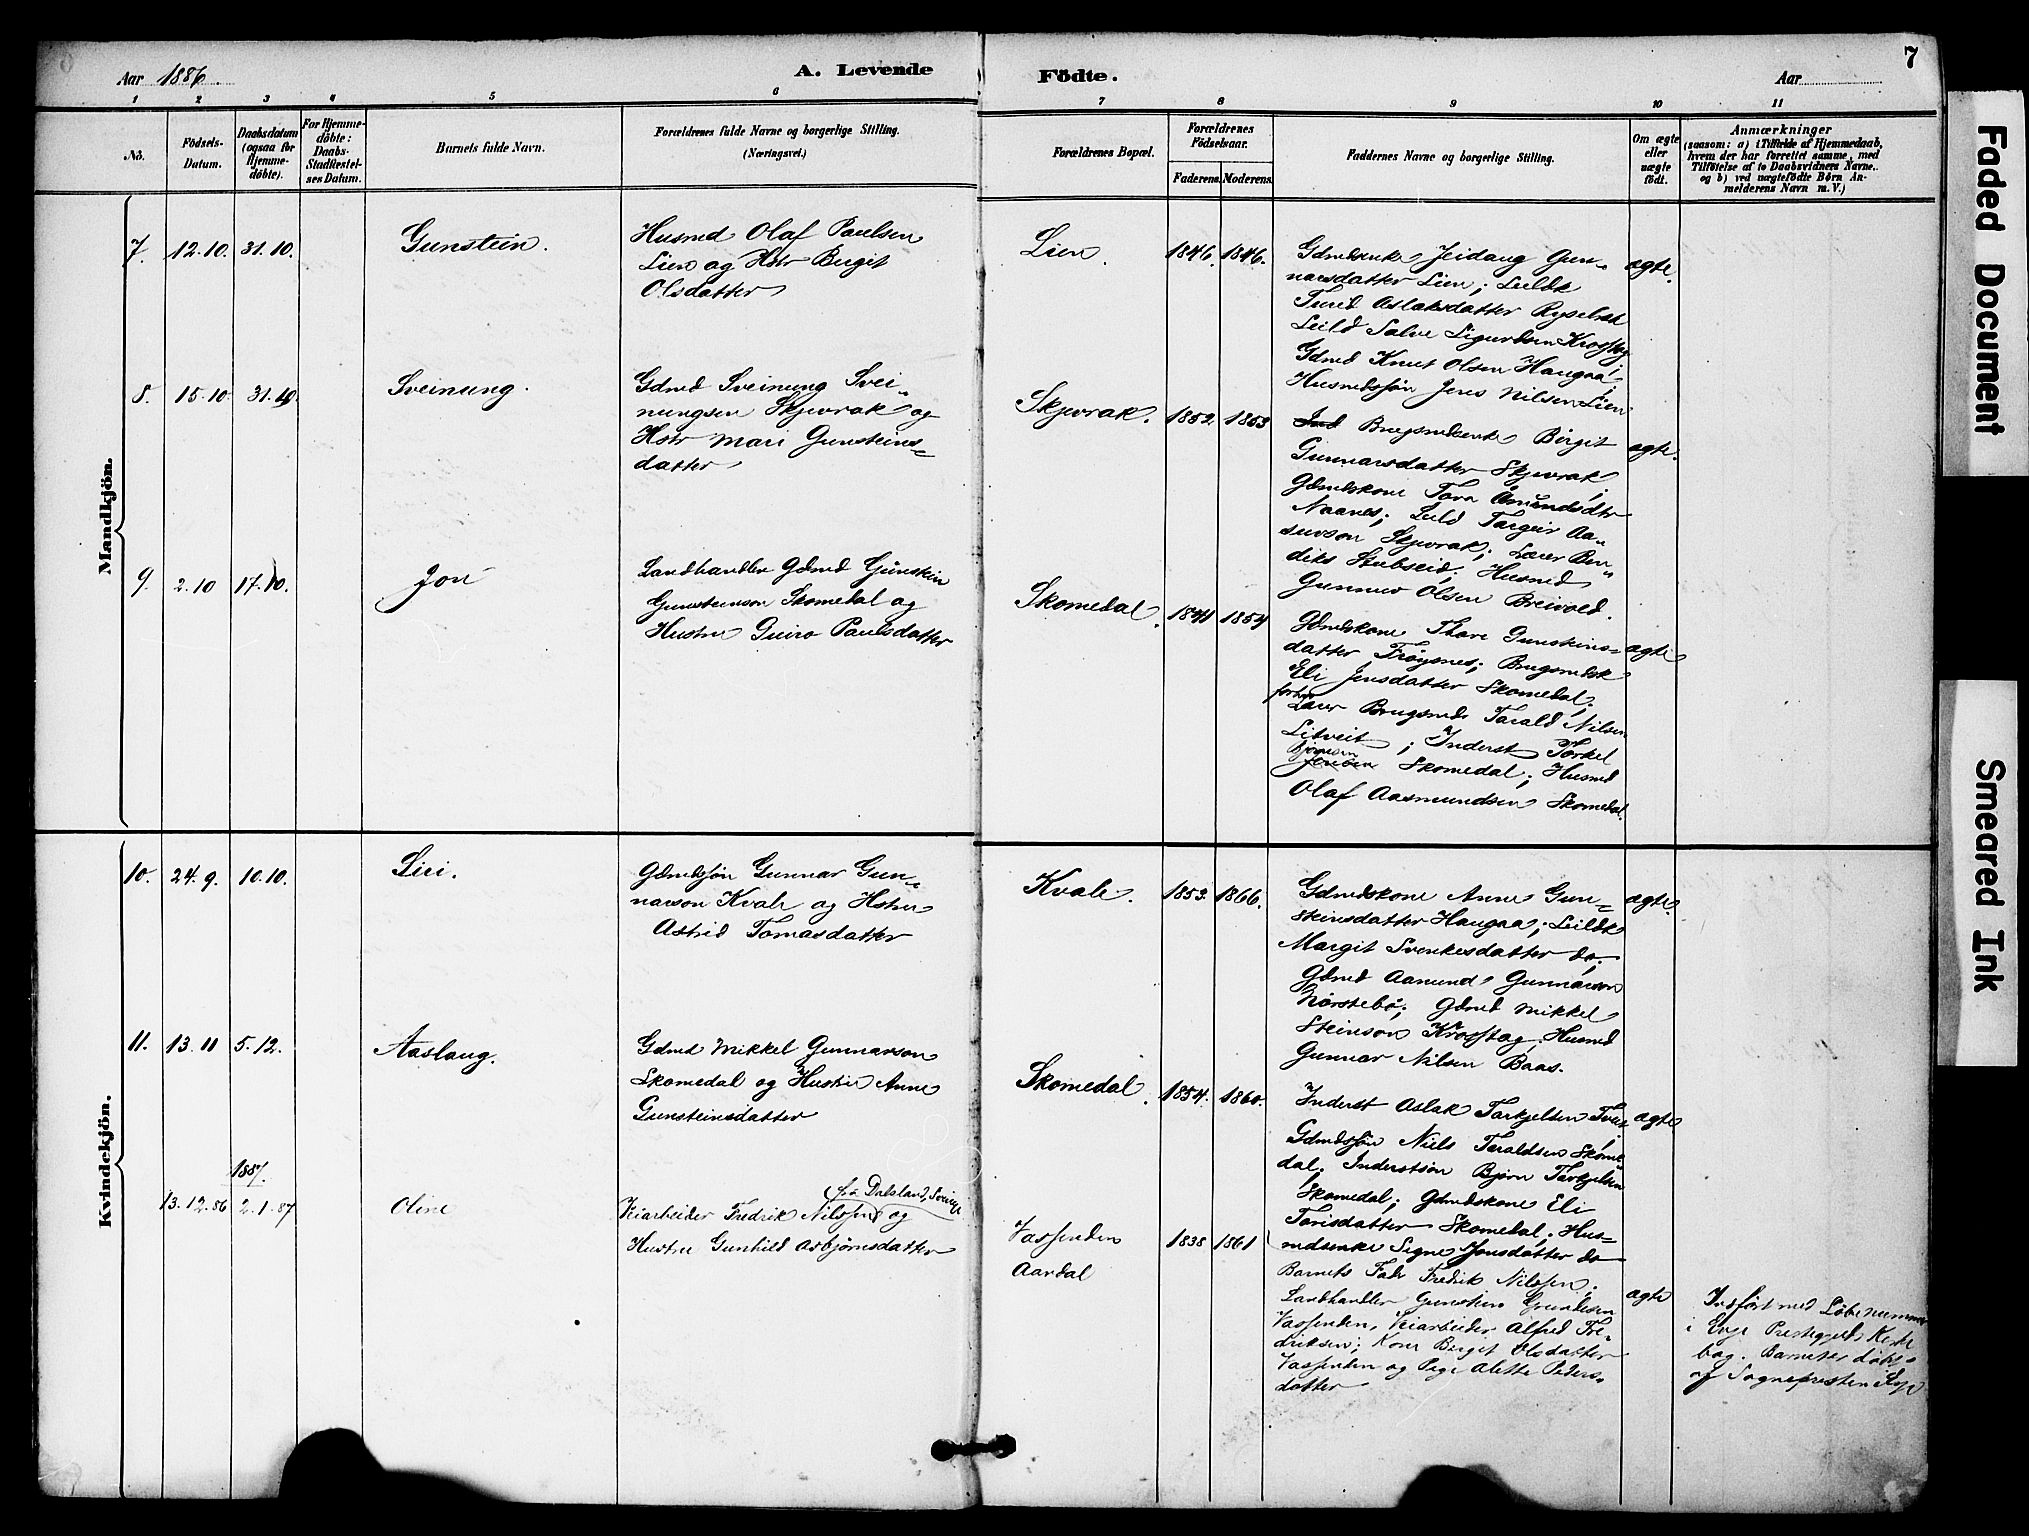 7
Aar 1886
A. Levende Födte.
Aar
1 2 3 4 5 6 7 8 9 10 11
No.
Födsels-Datum.
Daabsdatum (ogsaa for Hjemme-döbte).
For Hjemme-döbte: Daabs-Stadfæstel-ses Datum.
Barnets fulde Navn.
Forældrenes fulde Navne og borgerlige Stilling.
(Næringsvei.)
Forældrenes Bopæl.
Forældrenes Födselsaar.
Faderens. Moderens.
Faddernes Navne og borgerlige Stilling.
Om ægte eller uægte födt.
Anmærkninger
(saasom: a) i Tilfælde af Hjemmedaab,
hvem der har forrettet samme, med
Tilföielse af to Daabsvidners Navne.
og b) ved uægtefödte Börn An-
melderens Navn m. V.)
Mandkjön.
7. 12.10. 31.10. Gunstein.
Husmd Olaf Paulsen
Lien og Hstr Birgit
Olsdatter
Lien. 1846. 1846.
Gdmdenke Jeidaug Gun-
narsdatter Lien; Leildk
Turid Aslaksdatter Rysstad
Leild Salve Sigurdsen Krosstag
Gdmd Knut Olsen Haugaa;
Husmdssøn Jens Nilsen Lien
ægte.
8. 15.10. 31.10. Sveinung.
Gdmd Sveinung Svei-
nungsen Skjevrak og
Hstr Mari Gunsteins-
datter
Skjevrak. 1852. 1853
Brugsmdenke Birgit
Gunnarsdatter Skjevrak;
Gdmdskone Tora Amundsdtr
Naanes; Leild Targeir Aa-
suvson Skjevrak; Lærer Ben-
diks Stubseid; Husmd
Gunnar Olsen Breivold.
ægte.
9. 2.10 17.10. Jon
Landhandler Gdmd Gunstein
Gunsteinson Skomedal og
Hustru Guro Paulsdatter
Skomedal. 1841 1854
Gdmdskone Thore Gunsteins-
datter Frøysnes; Brugsmdsk
Eli Jensdatter Skomedal;
forhv
Lærer Brugsmd Tarald Nilsen
Litveit; Inderst Torkel
Bjørnsen
Jensen Skomedal; Husmd
Olaf Aasmundsen Skomedal.
ægte
Kvindekjön.
10. 24.9. 10.10. Siri.
Gdmdsøn Gunnar Gun-
narson Kvale og Hstru
Astrid Tomasdatter
Kvale. 1853. 1866.
Gdmdskone Anne Gun-
steinsdatter Haugaa; Leildk
Margit Svenkesdatter do.
Gdmd Aamund Gunnarson
Nørstebø; Gdmd Mikkel
Steinson Krosstag, Husmd
Gunnar Nilsen Baas.
ægte.
11. 13.11 5.12. Aaslaug.
Gdmd Mikkel Gunnarson
Skomedal og Hustru Anne
Gunsteinsdatter
Skomedal. 1854. 1860.
Inderst Aslak Tarkjelsen Tveit
Gdmdssøn Niels Taraldsen Skome-
dal. Inderstsøn Bjørn Tarkjelsen
Skomedal; Gdmdskone Eli
Torisdatter Skomedal; Hus-
mdsenke Signe Jonsdatter do
ægte
1887.
13.12.86 2.1.87 Oline
(fra Dalsland, Sverige
Veiarbeider Fredrik Nilssen og
Hustru Gunhild Asbjørnsdatter
Vassenden
Aardal
1838. 1861
Barnets Fader Fredrik Nilssen;
Landhandler Gunstein
Vassenden, Veiarbeider Alfred Fre-
driksen; Kone Birgit Olsdatter
Vassenden og Pige Alette Peders-
datter
ægte
Indført med Løbenummer
i Evje Prestegjelds Kirke-
bog. Barnet er døbt
af Sognepresten i Evje
Faded Document
Smeared Ink